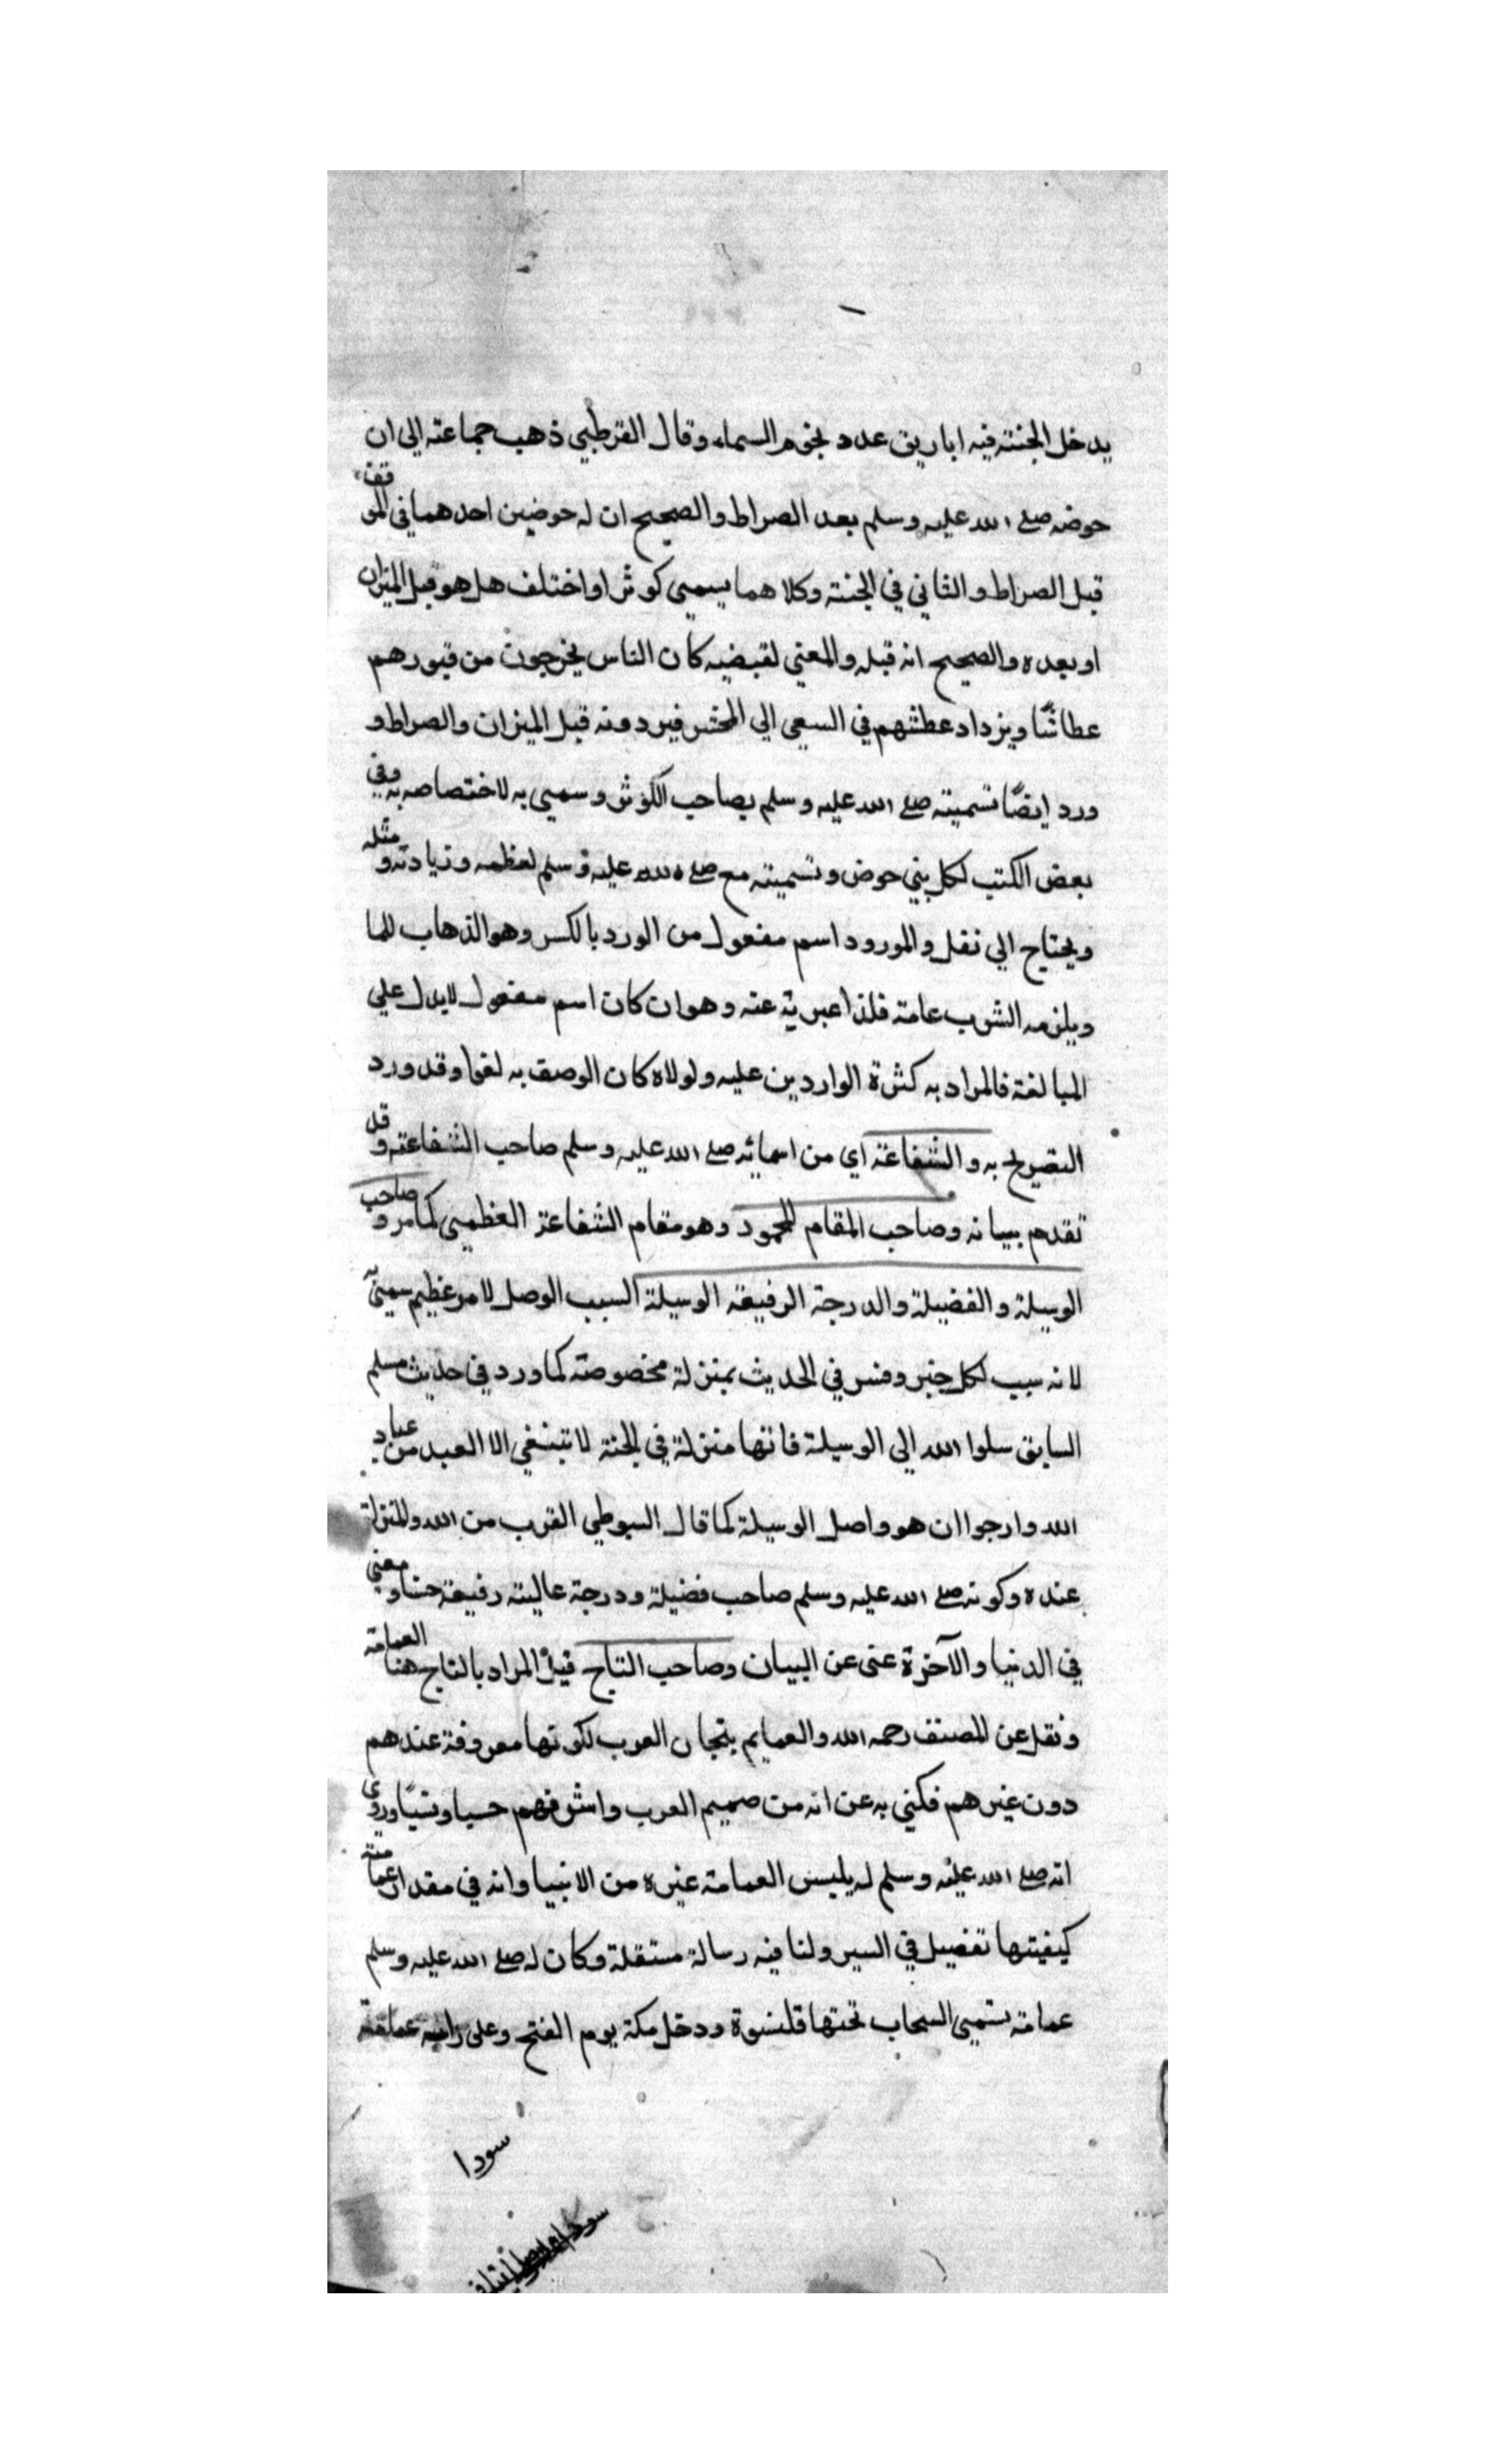 يدخل الجنته فيه اباريق عدد نجوم السماء وقال القرطبي ذهب جماعته الى ان
حوضه صلى الله عليه وسلم بعد الصراط والصحيح ان له حوضين احدهما في الموقف
قبل الصراط والثاني في الجنته وكلاهما يسمي كوثرا واختلف هل هو قبل الميزان
او بعده والصحيح انه قبله والمعني لقبضيه كان الناس يخرجون من قبورهم
عطاشًا ويزداد عطشهم في السعي الي المحشر فيردونه قبل الميزان والصراط و
ورد ايضًا تسميته صلى الله عليه وسلم بصاحب الكوثر وسمي به لاختصاصه به وفي
بعض الكتب لكل بني حوض وتسميته مع صلى الله عليه وسلم لعظمه وزيادته ومثله
ويحتاج الي نقل والمورود اسم مفعول من الورد بالكسر وهو الذهاب للما
ويلزمه الشرب عامته فلذا عبر به عنه وهو ان كان اسم مفعول لا يدل علي
المبالغة فالمراد به كثرة الواردين عليه ولولاه كان الوصف به لغوا وقد ورد
التصريح به والشفاعة اي من اسمائه صلى الله عليه وسلم صاحب الشفاعته وقد
تقدم بيانه وصاحب المقام المحمود وهو مقام الشفاعة العظمي كما مر وصاحب
الوسيلة والفضيلة والدرجة الرفيعة الوسيلة السبب الوصل لامر عظيم سمي
لانه سبب لكل خير وفسر في الحديث بمنزلة مخصوصة كما ورد في حديث مسلم
السابق سلوا الله الى الوسيلة فانها منزلة في الجنة لا تنبغي الا العبد من عباد
الله وارجوا ان هو واصل الوسيلة كما قال السيوطي القرب من الله والمنزلة
عنده وكونه صلى الله عليه وسلم صاحب فضيلة ودرجة عاليته رفيعة حسا ومعني
في الدنيا والآخرة غنى عن البيان وصاحب التاج قيل المراد بالتاج هنا العمامته
ونقل عن المصنف رحمه الله والعمايم بتجان العرب لكونها معروفة عندهم
دون غيرهم فكني به عن انه من صميم العرب واشرفهم حسبا ونسبًا وروى
انه صلى الله عليه وسلم لم يلبس العمامة غيره من الانبيا وانه في مقدار عمامته
كيفيتها تفصيل في السير ولنا فيه رسالة مستقلة وكان له صلى الله عليه وسلم
عمامة تسمي السحاب تحتها قلنسوة ودخل مكة يوم الفتح وعلى راسه عمامة
سودا